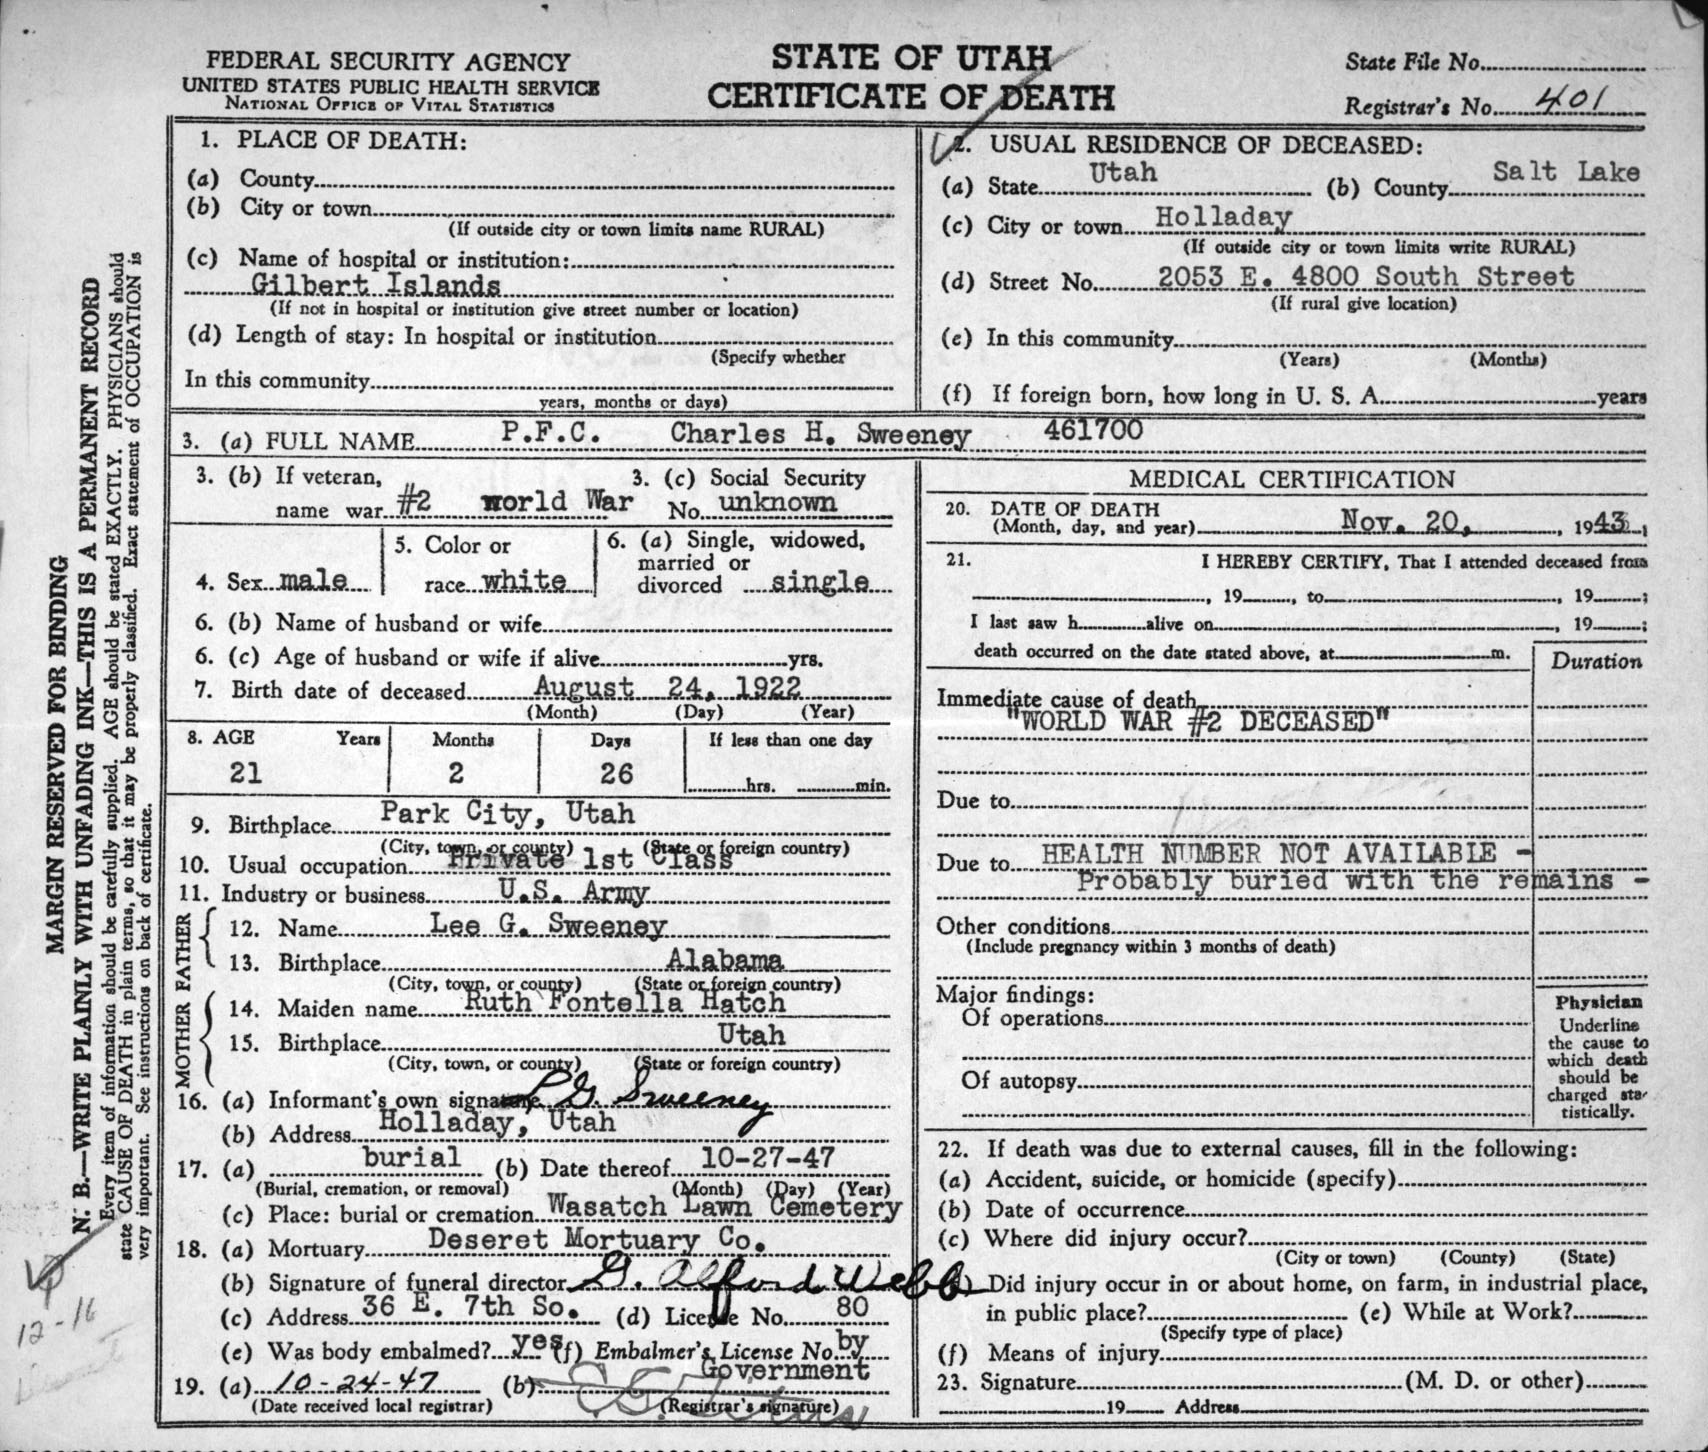 FEDERAL SECURITY AGENCY
UNITED STATES PUBLIC HEALTH SERVICE
NATIONAL OFFICE OF VITAL STATISTICS
STATE OF UTAH
CERTIFICATE OF DEATH
State File No.
Registrar's No. 401
MARGIN RESERVED FOR BINDING
N. B.—WRITE PLAINLY WITH UNFADING INK—THIS IS A PERMANENT RECORD
Every item of information should be carefully supplied. AGE should be stated EXACTLY. PHYSICIANS should
state CAUSE OF DEATH in plain terms, so that it may be properly classified. Exact statement of OCCUPATION is
very important. See instructions on back of certificate.
12-16
1. PLACE OF DEATH:
(a) County
(b) City or town
(If outside city or town limits name RURAL)
(c) Name of hospital or institution:
Gilbert Islands
(If not in hospital or institution give street number or location)
(d) Length of stay: In hospital or institution
(Specify whether
In this community
years, months or days)
2. USUAL RESIDENCE OF DECEASED:
(a) State Utah (b) County Salt Lake
(c) City or town Holladay
(If outside city or town limits write RURAL)
(d) Street No. 2053 E. 4800 South Street
(If rural give location)
(e) In this community
(Years) (Months)
(f) If foreign born, how long in U. S. A. years
3. (a) FULL NAME P.F.C. Charles H. Sweeney 461700
3. (b) If veteran,
name war #2 world War
3. (c) Social Security
No. unknown
4. Sex male
5. Color or
race white
6. (a) Single, widowed,
married or
divorced single
6. (b) Name of husband or wife
6. (c) Age of husband or wife if alive yrs.
7. Birth date of deceased August 24, 1922
(Month) (Day) (Year)
8. AGE Years Months Days If less than one day
21 2 26 hrs. min.
9. Birthplace Park City, Utah
(City, town, or county) (State or foreign country)
10. Usual occupation Private 1st Class
11. Industry or business U.S. Army
FATHER
12. Name Lee G. Sweeney
13. Birthplace Alabama
(City, town, or county) (State or foreign country)
MOTHER
14. Maiden name Ruth Fontella Hatch
15. Birthplace Utah
(City, town, or county) (State or foreign country)
16. (a) Informant's own signature L G. Sweeney
(b) Address Holladay, Utah
17. (a) burial (b) Date thereof 10-27-47
(Burial, cremation, or removal) (Month) (Day) (Year)
(c) Place: burial or cremation Wasatch Lawn Cemetery
18. (a) Mortuary Deseret Mortuary Co.
(b) Signature of funeral director G. Alford Webb
(c) Address 36 E. 7th So. (d) License No. 80
(e) Was body embalmed? yes (f) Embalmer's License No. by
Government
19. (a) 10-24-47 (b)
(Date received local registrar) (Registrar's signature)
MEDICAL CERTIFICATION
20. DATE OF DEATH
(Month, day, and year) Nov. 20, 1943
21. I HEREBY CERTIFY, That I attended deceased from
, 19 , to , 19 ;
I last saw h alive on , 19 ;
death occurred on the date stated above, at m.
Duration
Immediate cause of death
"WORLD WAR #2 DECEASED"
Due to
Due to HEALTH NUMBER NOT AVAILABLE -
Probably buried with the remains -
Other conditions
(Include pregnancy within 3 months of death)
Major findings:
Of operations
Of autopsy
Physician
Underline
the cause to
which death
should be
charged sta-
tistically.
22. If death was due to external causes, fill in the following:
(a) Accident, suicide, or homicide (specify)
(b) Date of occurrence
(c) Where did injury occur?
(City or town) (County) (State)
Did injury occur in or about home, on farm, in industrial place,
in public place? (e) While at Work?
(Specify type of place)
(f) Means of injury
23. Signature (M. D. or other)
19 Address